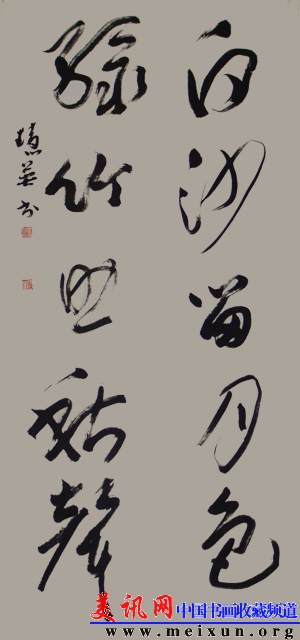 白沙留月色
綠竹助秋聲
英书
美讯网 中国书画收藏频道
www.meixun.org